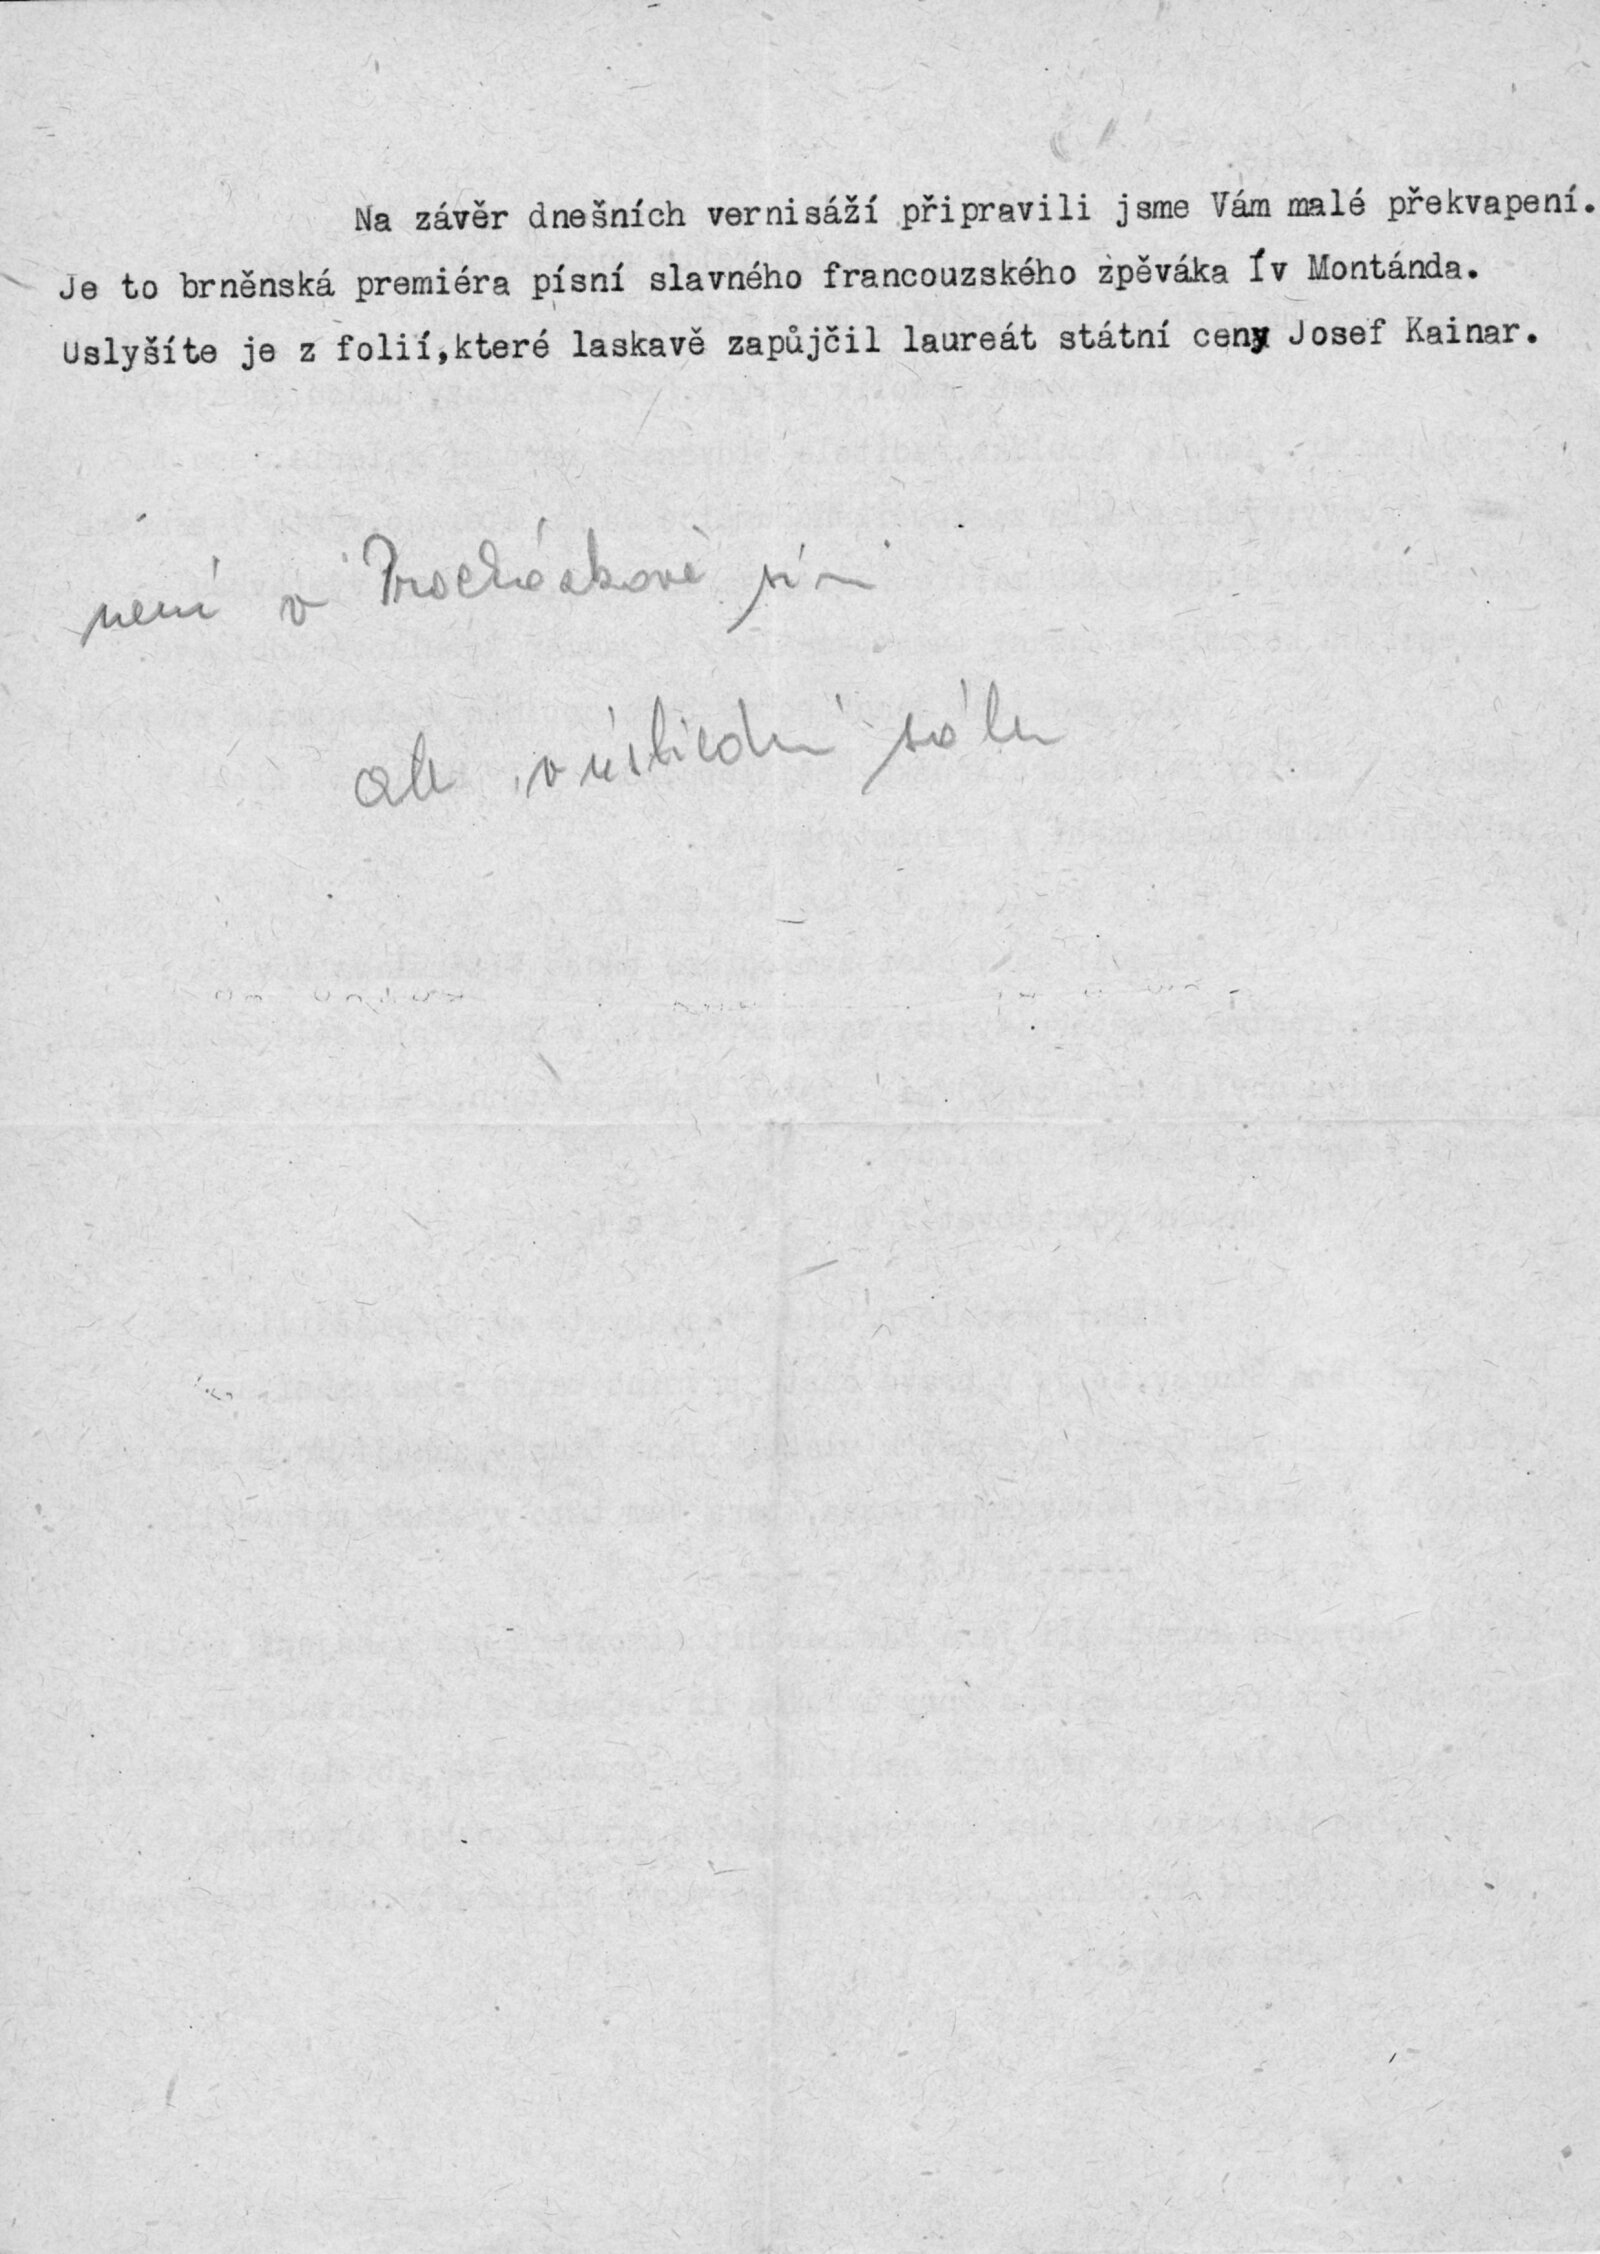 Na závěr dnešních vernisáží připravili jsme Vám malé překvapení.
Je to brněnská premiéra písní slavného francouzského zpěváka Ív Montánda.
Uslyšíte je z folií,které laskavě zapůjčil laureát státní ceny Josef Kainar.
není v Procházkově síni
ale v ústřední sálu